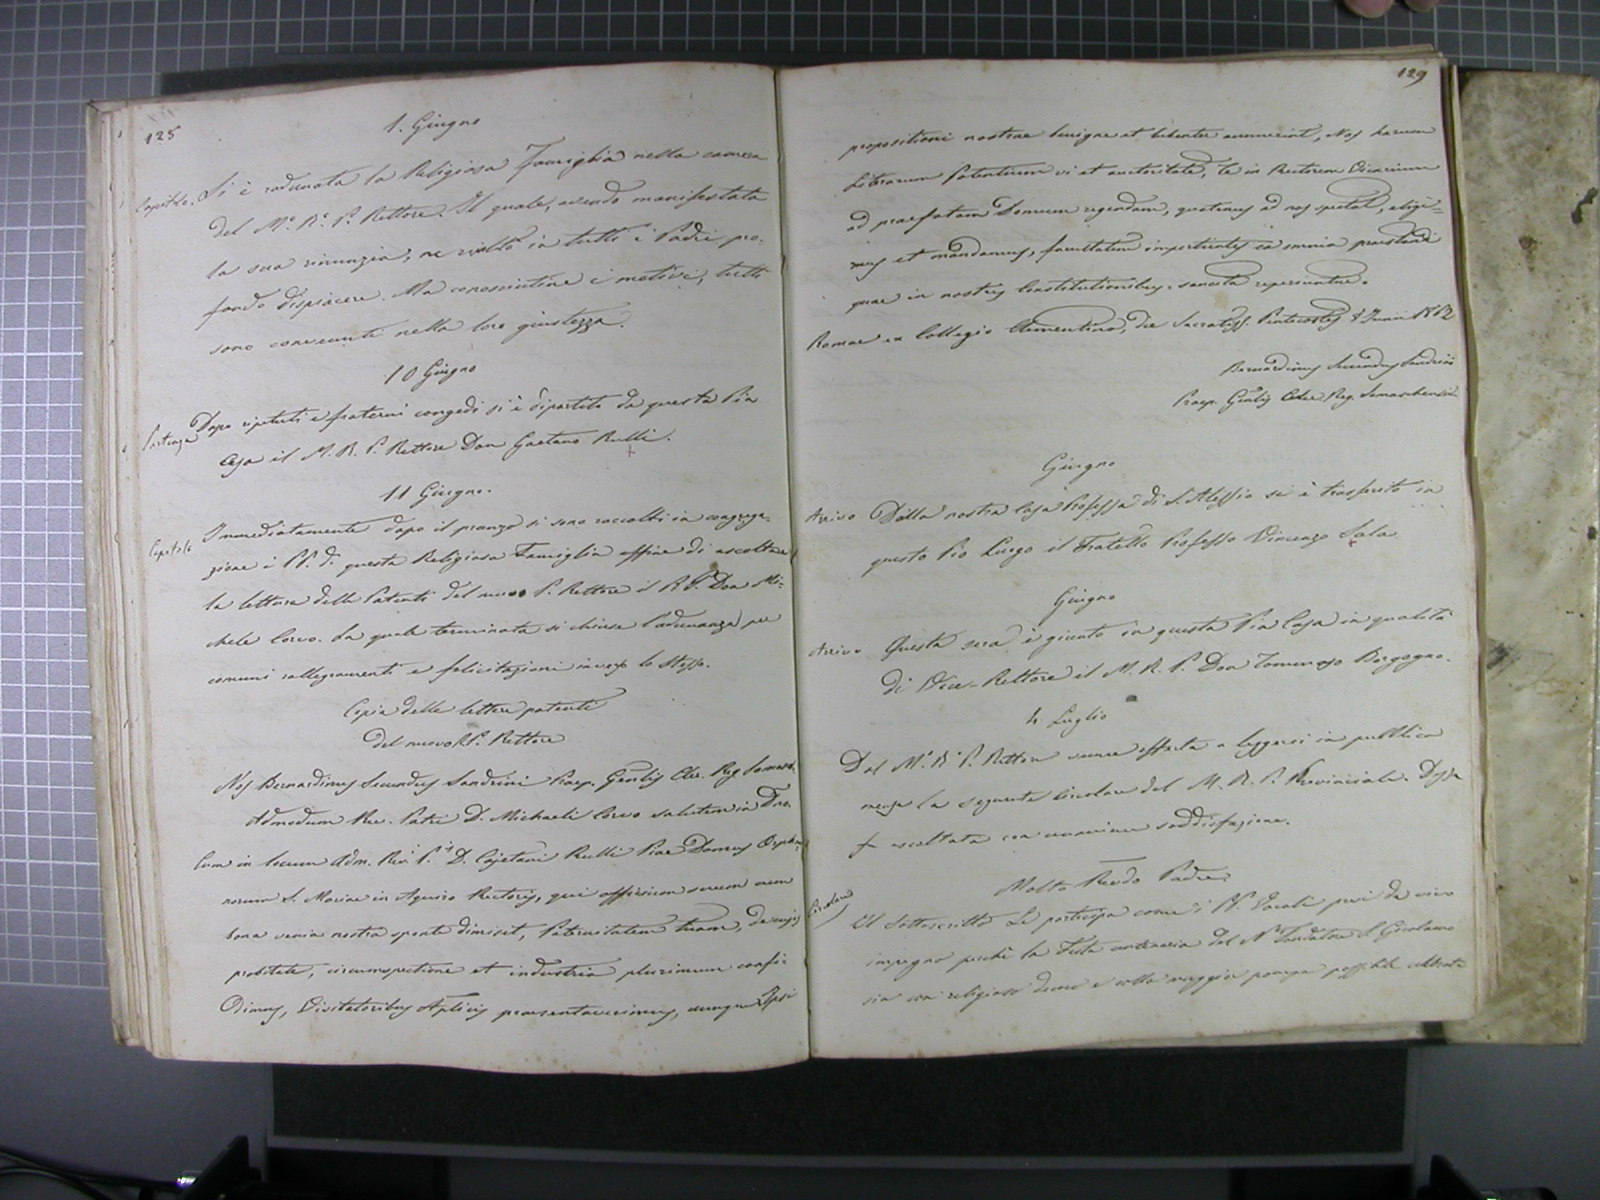 128
1. Giugno
Capitolo. Si è radunata la Religiosa Famiglia nella camera
del M.º R.º P. Rettore. Il quale, avendo manifestata
la sua rinunzia, ne risultò in tutti i Padri pro-
fondo dispiacere. Ma conosciutine i motivi, tutti
sono convenuti nella loro giustezza.
10 Giugno
Partenza Dopo ripetuti e fraterni congedi si è dipartito da questa Pia
Casa il M. R. P. Rettore Don Gaetano Rulli.
11 Giugno.
Capitolo Immediatamente dopo il pranzo si sono raccolti in congrega-
zione i PP. di questa Religiosa Famiglia affine di ascoltare
la lettura delle Patenti del nuovo P. Rettore il R. P. Don Mi-
chele Corvo. La quale terminata si chiuse l'adunanza per
comuni rallegramenti e felicitazioni inverso lo stesso.
Copia delle lettere patenti
del nuovo R. P. Rettore
Nos Bernardinus Secundus Sandrini Praep. Gen.lis Cler. Reg. Somasch.
Admodum Rev. Patri D. Michaeli Corvo salutem in Dno.
Cum in locum Adm. Rev. P. D. Cajetani Rulli Piae Domus Orpha-
norum S. Mariae in Aquiro Rectoris, qui officium suum cum
bona venia nostra sponte dimisit, Paternitatem tuam, de cujus
probitate, circumspectione et industria plurimum confi-
dimus, Visitatoribus Aplicis praesentaverimus, cumque Ipsi
129
propositioni nostrae benigne et libenter annuerint, Nos harum
Literarum Patentium vi et auctoritate, te in Rectorem Vicarium
ad praefatam Domum regendam, quatenus ad nos spectat, eligi-
mus et mandamus, facultatem impertientes ea omnia praestandi
quae in nostris Constitutionibus sancita reperiuntur.
Romae ex Collegio Clementino, die Sacratiss. Pentecostes 8 Junii 1862
Bernardinus Secundus Sandrini
Praep. Gen.lis Cler. Reg. Somaschensis
Giugno
Arrivo Dalla nostra Casa Professa di S. Alessio si è trasferito in
questo Pio Luogo il Fratello Professo Vincenzo Sala.
Giugno
Arrivo Questa sera è giunto in questa Pia Casa in qualità
di Vice-Rettore il M. R. P. Don Tommaso Borgogno.
4 Luglio
Dal M.º R.º P. Rettore venne offerta a leggersi in pubblica
mensa la seguente Circolare del M. R. P. Provinciale. Dessa
fu ascoltata con unanime soddisfazione.
Molto Revdo Padre
Circolare Il Sottoscritto Le partecipa come i PP. Vocali presi da vivo
impegno perchè la Festa centenaria del N.º Fondatore S. Girolamo
sia con religioso decoro e colla maggior pompa possibile celebrata